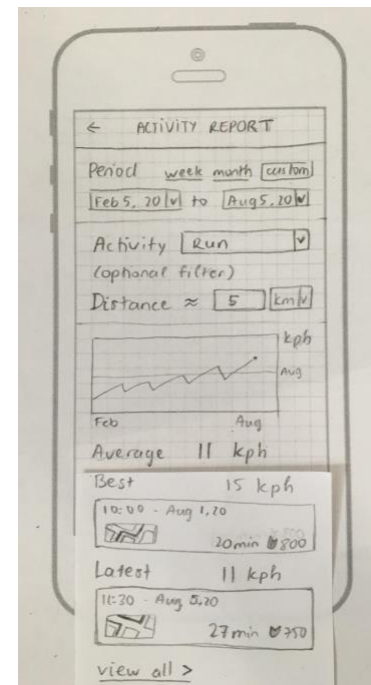 ← ACTIVITY REPORT
Period week month custom
Feb 5, 20 v to Aug 5, 20 v
Activity Run v
(optional filter)
Distance ≈ 5 km v
kph
Aug
Feb Aug
Average 11 kph
Best 15 kph
10:00 - Aug 1, 20
20 min 800
Latest 11 kph
11:30 - Aug 5, 20
27 min 750
view all >